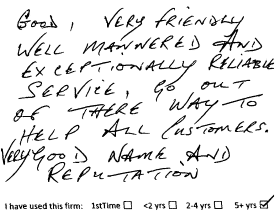 GOOD, VERY FRIENDLY
WELL MANNERED AND
EXCEPTIONALLY RELIABLE
SERVICE, GO OUT
OF THERE WAY TO
HELP ALL CUSTOMERS.
VERY GOOD NAME AND
REPUTATION
I have used this firm: 1stTime ☐ <2 yrs ☐ 2-4 yrs ☐ 5+ yrs ☑